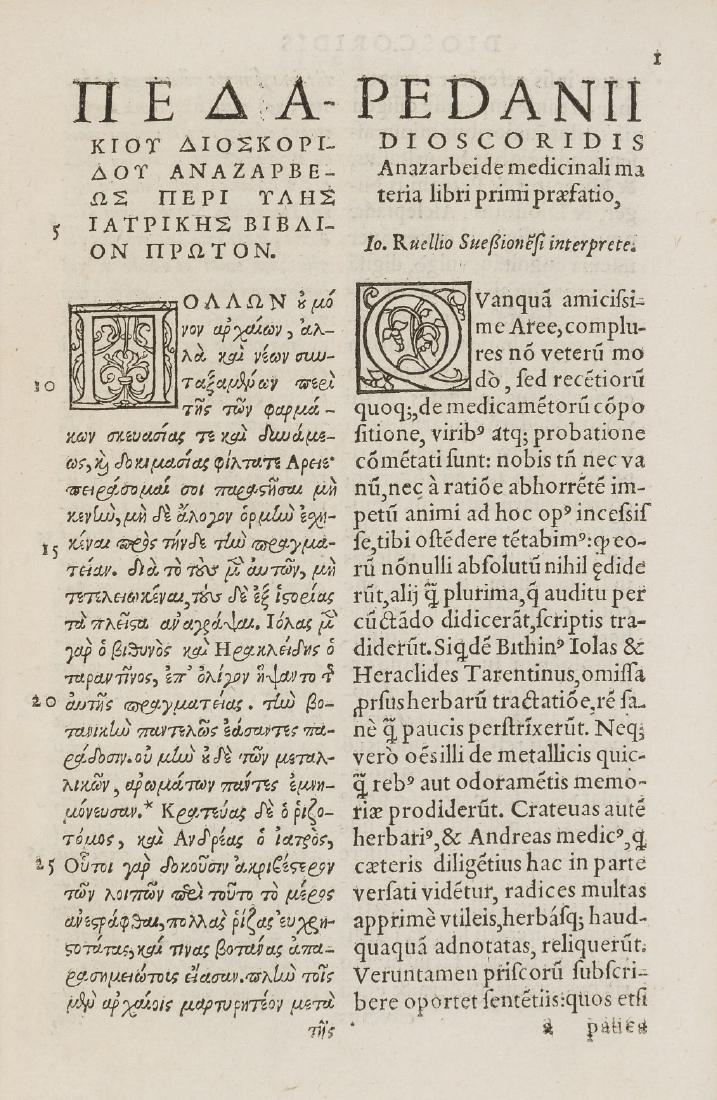 1
ΠΕΔΑ-
ΚΙΟΥ ΔΙΟΣΚΟΡΙ-
ΔΟΥ ΑΝΑΖΑΡΒΕ-
ΩΣ ΠΕΡΙ ΥΛΗΣ
5 ΙΑΤΡΙΚΗΣ ΒΙΒΛΙ-
ΟΝ ΠΡΩΤΟΝ.
ΠΟΛΛΩΝ ȣ μό
νον αρχαίων, ἀλ-
λὰ καὶ νέων συν-
10 ταξαμθύων περὶ
τῆς τῶν φαρμά-
κων σκευασίας τε καὶ δυνάμε-
ως, κỳ δοκιμασίας φίλτατε Αρειε·
πειράσομαί σοι παραςῆσαι μὴ
κενὴν, μὴ δὲ ἄλογον ὁρμὴν ἐσχη-
15 κέναι πρὸς τήνδε τὴν πραγμα-
τείαν. διὰ τὸ τοὺς μ̃ αὐτῶν, μὴ
τετελειωκέναι, τοὺς δὲ ἐξ ἱςορίας
τὰ πλεῖςα αναγράψαι. Ιόλας μ̃
γαρ ὁ βιθυνὸς καὶ Ηρακλείδης ὁ
ταραντῖνος, ἐπ' ὀλίγον ἥψαντο τ̃
20 αὐτῆς πραγματείας. τὴν βο-
τανικὴν παντελῶς ἐάσαντες πα-
ράδοσιν. οὐ μὴν ȣ δὲ τῶν μεταλ-
λικῶν, αρωμάτων πάντες ἐμνη-
μόνευσαν.* Κρατεύας δὲ ὁ ῥιζο-
τόμος, καὶ Ανδρέας ὁ ἰατρὸς,
25 Οὗτοι γαρ δοκοῦσιν ἀκριβέςερον
τῶν λοιπῶν περὶ τοῦτο τὸ μέρος
ανεςράφθαι, πολλὰς ῥίζας εὐχρη-
ςοτάτας, καί τινας βοτάνας ἀπα-
ρασημειώτους εἴασαν. πλὴν τοῖς
μθὺ αρχαίοις μαρτυρητέον μετὰ
τῆς
PEDANII
DIOSCORIDIS
Anazarbei de medicinali ma
teria libri primi præfatio,
Io. Ruellio Sueßionẽsi interprete.
QVanquã amicissi-
me Aree, complu-
res nõ veterũ mo
dò, sed recẽtiorũ
quoq;, de medicamẽtorũ cõpo
sitione, viribꝰ atq; probatione
cõmẽtati sunt: nobis tñ nec va
nũ, nec à ratiõe abhorrẽtẽ im-
petũ animi ad hoc opꝰ incessis
se, tibi ostẽdere tẽtabimꝰ: ꝙ eo-
rũ nõnulli absolutũ nihil ędide
rũt, alij q̃ plurima, q̃ auditu per
cũctãdo didicerãt, scriptis tra-
diderũt. Siqdẽ Bithinꝰ Iolas &
Heraclides Tarentinus, omissa
ꝓrsus herbarũ tractatiõe, rẽ sa-
nè q̃ paucis perstrĩxerũt. Neq;
verò oẽs illi de metallicis quic-
q̃ rebꝰ aut odoramẽtis memo-
riæ prodiderũt. Crateuas autẽ
herbariꝰ, & Andreas medicꝰ, q
cæteris diligẽtius hac in parte
versati vidẽtur, radices multas
apprimè vtileis, herbásq; haud-
quaquã adnotatas, reliquerũt.
Veruntamen priscorũ subscri-
bere oportet sentẽtiis: quos etsi
a paucę